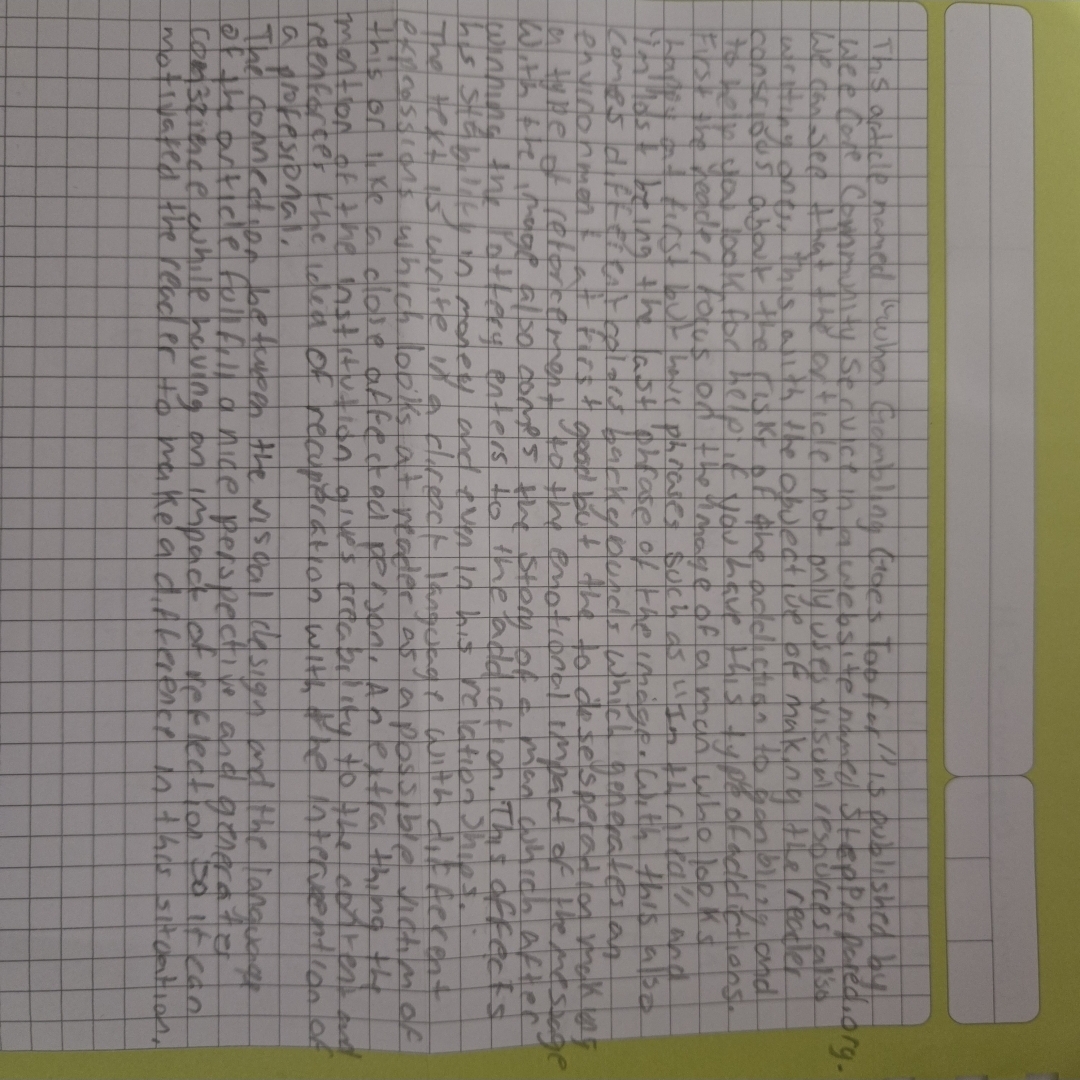 This article named "When Gambling Goes Too far" is published by
We Care Community Service in a website named Step Prepared.org.
We can see that the article not only uses visual resources also
writing ones, this with the objective of making the reader
conscious about the risks of the addiction to gambling and
to help you look for help if you have this type of addictions.
First the reader focus on the image of a man who looks
happy at first but have phrases such as "I'm thrilled" and
being the last phrase of the image. With this also
comes different colors backgrounds which generates an
environment at first good but the to desesperation making
a type of reforcement to the emotional impact of the message
With the image also comes the story of a man which after
winning the lottery enters to the addiction. This affects
his stability in money and even in his relationships.
The text is write in a direct language with different
expressions which looks at reader as a possible victim of
this or like a close affected person. An extra thing the
mention of the institution gives creability to the content and
reenforces the idea of recuperation with the intervention of
a profesional.
The connection between the visual design and the language
of the article fullfill a nice perspective and generates
conszience while having an impact of reflection so it can
motivated the reader to make a difference in this situation.